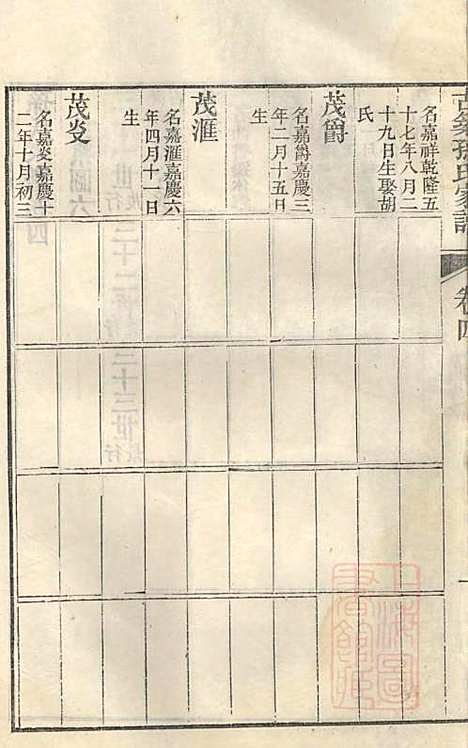 古築孫氏家譜
卷四
名嘉祥乾隆五
十七年八月二
十九日生娶胡
氏
茂爵
名嘉爵嘉慶三
年二月十五日
生
茂滙
名嘉滙嘉慶六
年四月十一日
生
茂炎
名嘉炎嘉慶十
二年十月初三
上海圖
書館藏